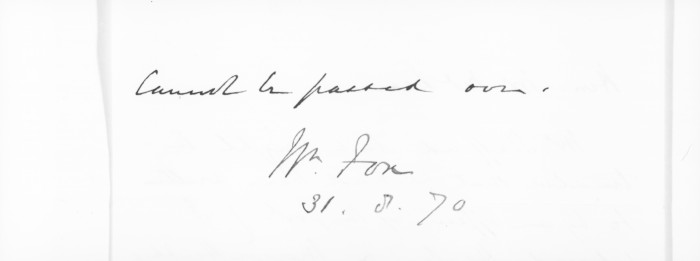 Cannot be passed over.
Wm. Fox
31. 8. 70